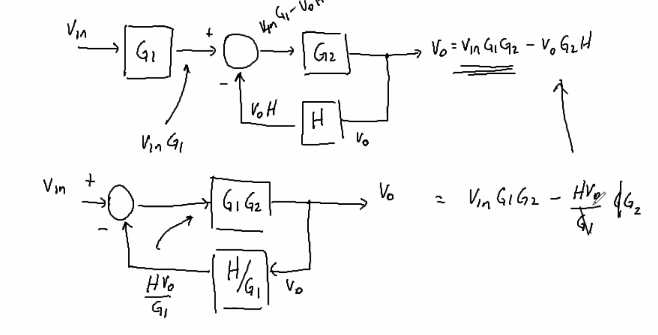 VinG1 - VoH
Vin + G1 G2 Vo = VinG1G2 - VoG2H
-
VoH H Vo
VinG1
Vin + G1G2 Vo = VinG1G2 - HVo/G1 G1G2
-
HVo/G1 H/G1 Vo